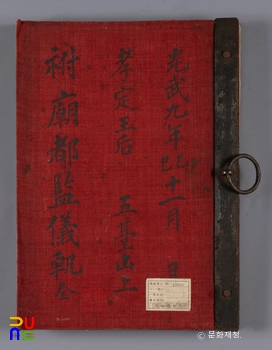 光武九年乙巳十一月 日
孝定王后 五臺山上
祔廟都監儀軌 全
© 문화재청.